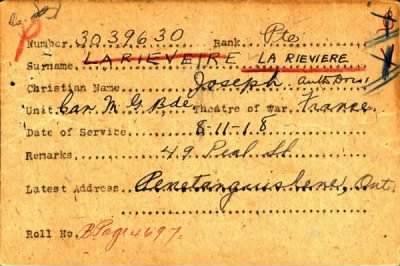 Number. 3039630 Rank Pte
Surname LARIEVEIRE LA RIEVIERE
Christian Name Joseph Auth Docs.
Unit. Can M G Bde Theatre of War. France
Date of Service 8-11-18
Remarks 49 Peal St
Latest Address. Penetanguishene, Ont.
Roll No. B Page 4697.